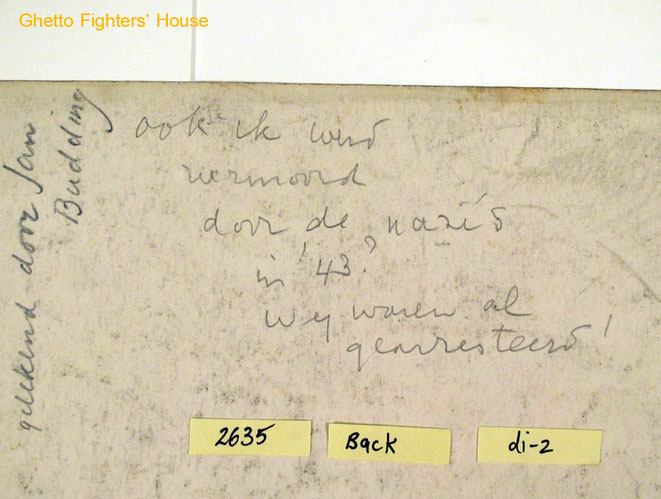 Ghetto Fighters' House
getekend door Jan
Budding
ook ik werd
vermoord
door de nazi's
in '43?
wij waren al
gearresteerd!
2635
Back
di-2